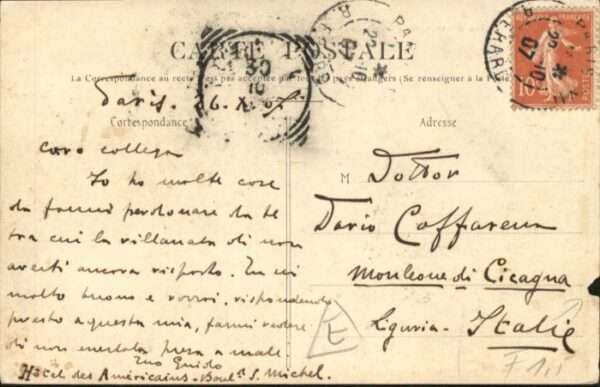 CARTE POSTALE
La Correspondance au recto n'est pas acceptée par tous les pays étrangers (Se renseigner à la Poste)
Paris. 26. X. 07
Correspondance
Adresse
caro collega
Io ho molte cose
da farmi perdonare da te
tra cui la villanata di non
averti ancora risposto. Tu sei
molto buono e vorrai, rispondendo
presto a questa mia, farmi vedere
di non essertela presa a male
Tuo Guido
Hôtel des Américains - Boul. S. Michel.
M
Dottor
Dario
Monleone di Cicagna
Liguria - Italie
PARIS
07
10
POSTES